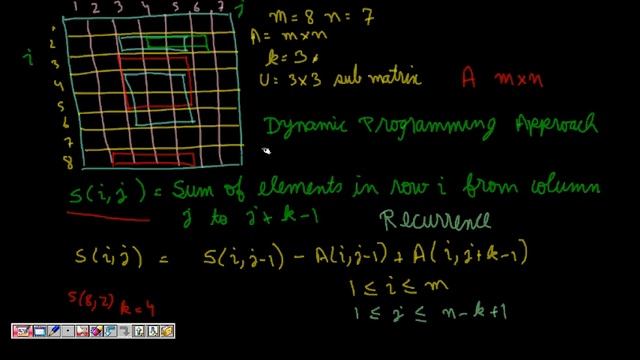 1 2 3 4 5 6 7 j
m = 8 n = 7
A = m×n
k = 3
U = 3×3 sub matrix A m×n
i
2
3
4
5
6
7
8
Dynamic Programming Approach
S(i,j) = Sum of elements in row i from column
j to j+k-1 Recurrence
S(i,j) = S(i,j-1) - A(i,j-1) + A(i,j+k-1)
1 ≤ i ≤ m
S(8,2) k=4
1 ≤ j ≤ n-k+1